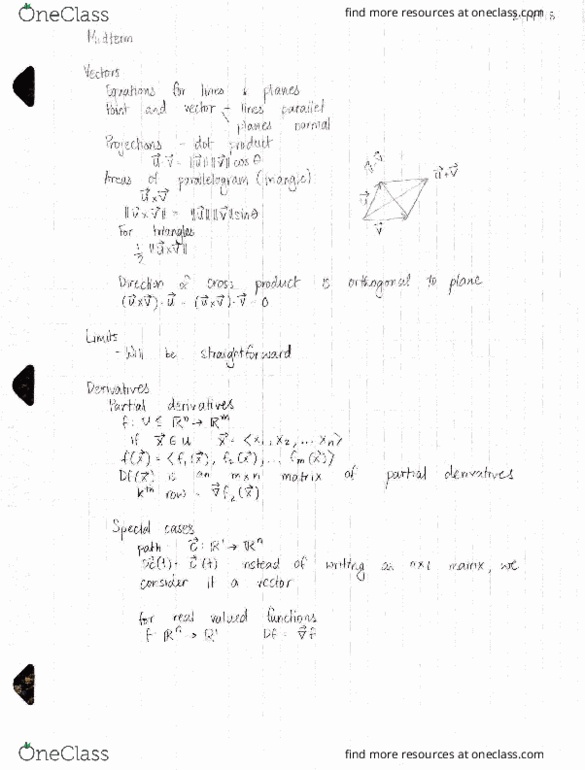 OneClass
find more resources at oneclass.com
Midterm
Vectors
Equations for lines & planes
Point and vector - lines parallel
planes normal
Projections - dot product
u⃗·v⃗ = ||u⃗|| ||v⃗|| cos θ
Areas of parallelogram (triangle)
u⃗×v⃗
||u⃗×v⃗|| = ||u⃗|| ||v⃗|| sinθ
For triangles
½ ||u⃗×v⃗||
u⃗
v⃗
u⃗+v⃗
Direction of cross product is orthogonal to plane
(u⃗×v⃗)·u⃗ = (u⃗×v⃗)·v⃗ = 0
Limits
- Will be straightforward
Derivatives
Partial derivatives
f: U ⊆ ℝⁿ → ℝᵐ
if x⃗ ∈ u x⃗ = <x₁, x₂, ... xₙ>
f(x⃗) = <f₁(x⃗), f₂(x⃗), ... fₘ(x⃗)>
Df(x⃗) is an m×n matrix of partial derivatives
kᵗʰ row = ∇⃗f₂(x⃗)
Special cases
path c⃗: ℝ¹ → ℝⁿ
Dc⃗(t) = c⃗'(t) instead of writing as n×1 matrix, we
consider it a vector
for real valued functions
f: ℝⁿ → ℝ¹ Df = ∇⃗f
OneClass
find more resources at oneclass.com